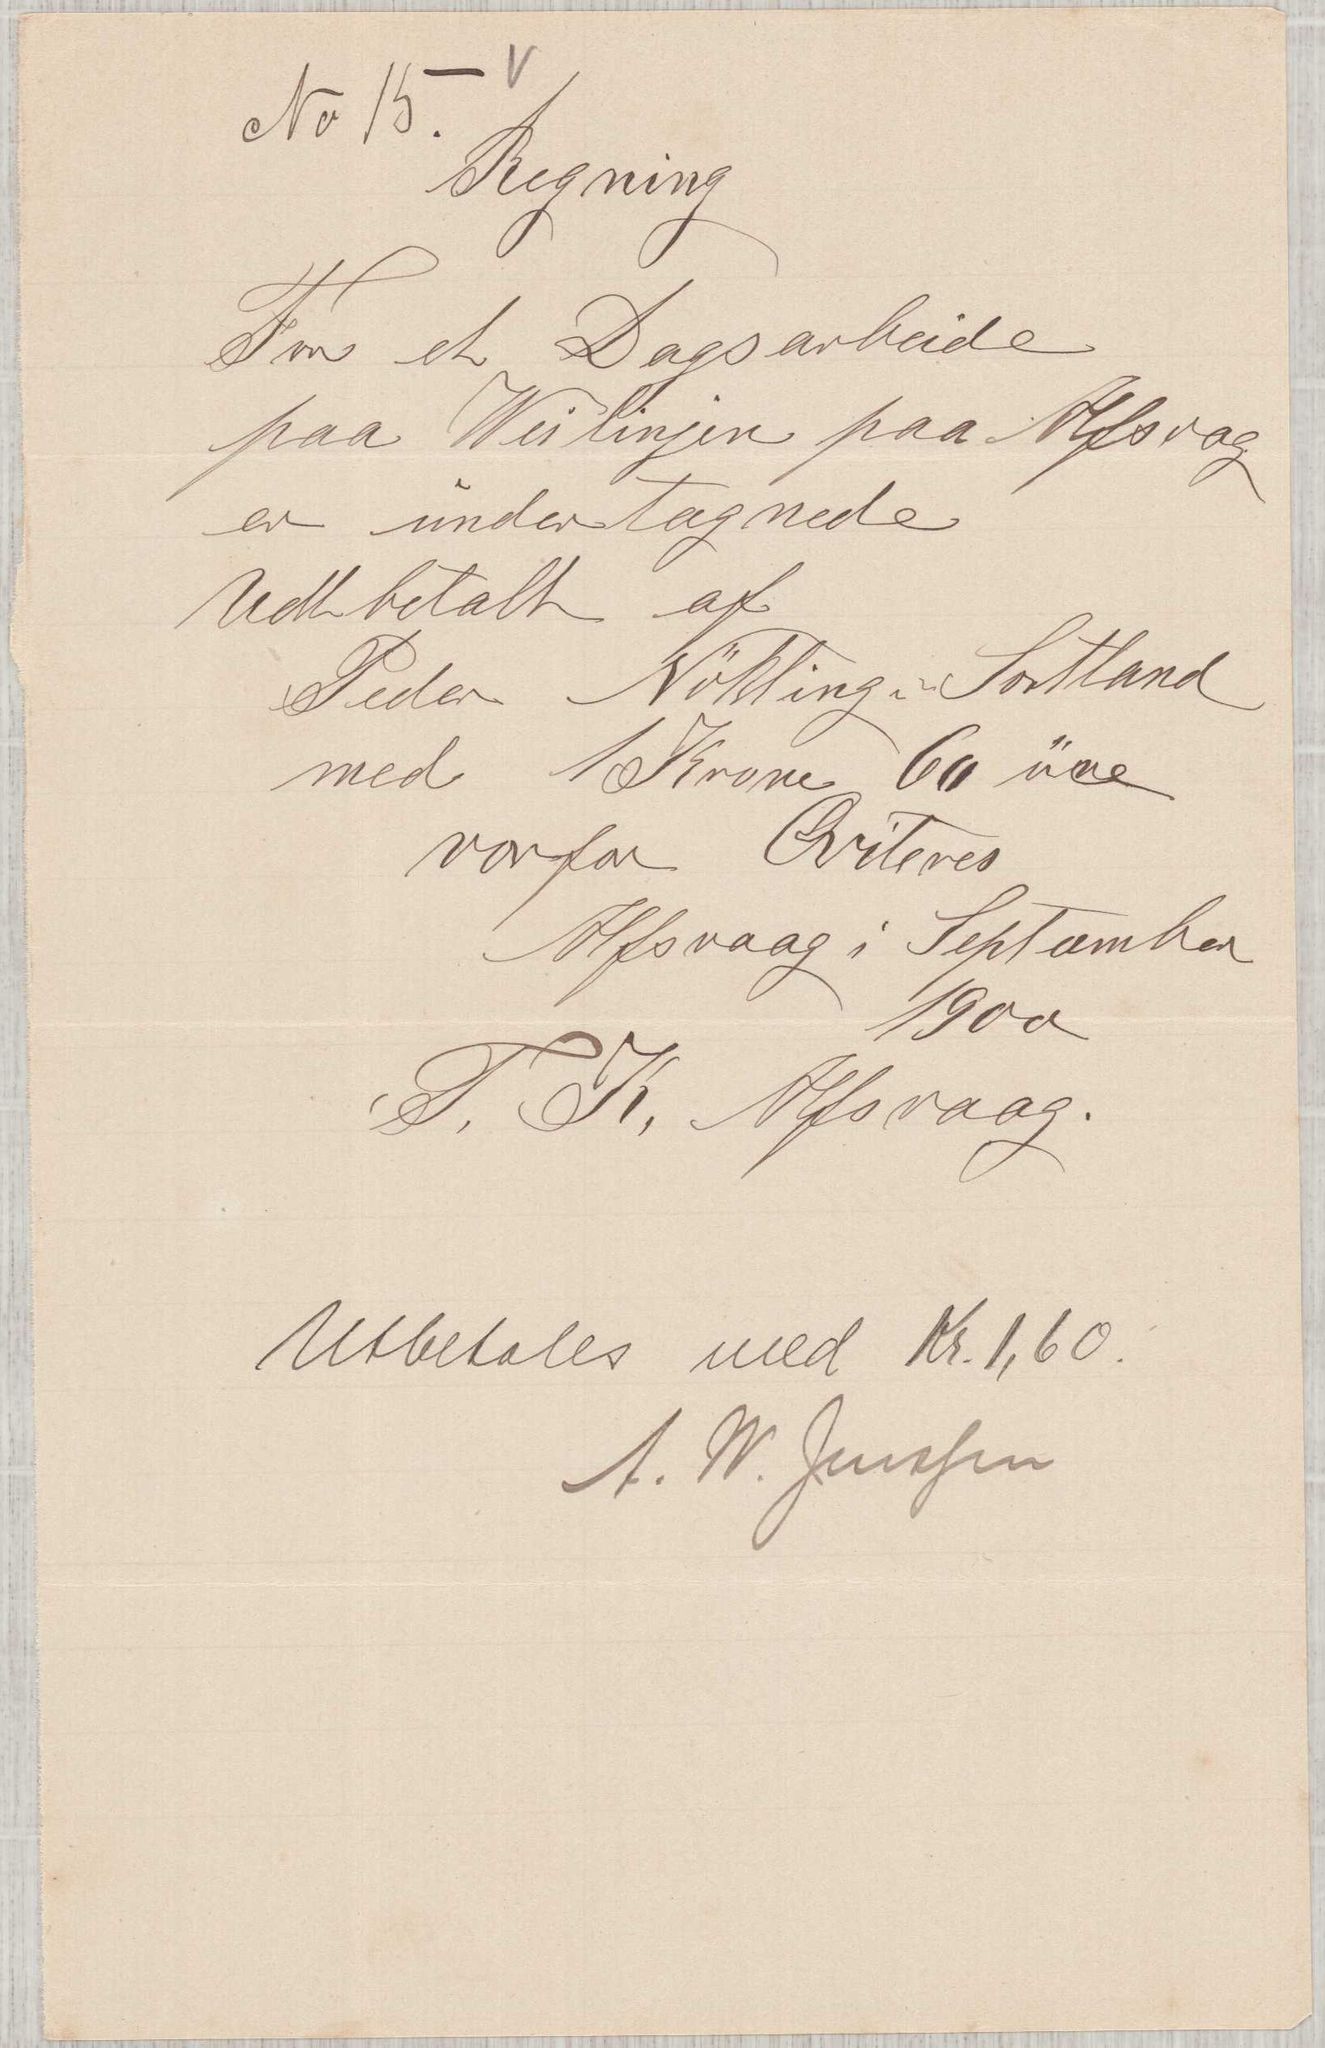 No 15. V
Regning
For et Dagsarbeide
paa Veilinjen paa Alfsvag
er undertegnede
Udbetalt af
Peder Nökling Sortland
med 1 Krone 60 öre
vorfor Qviteres
Alfsvaag i September
1900
T. K. Alfsvaag.
Utbetales med Kr. 1,60.
A. W. Jenssen